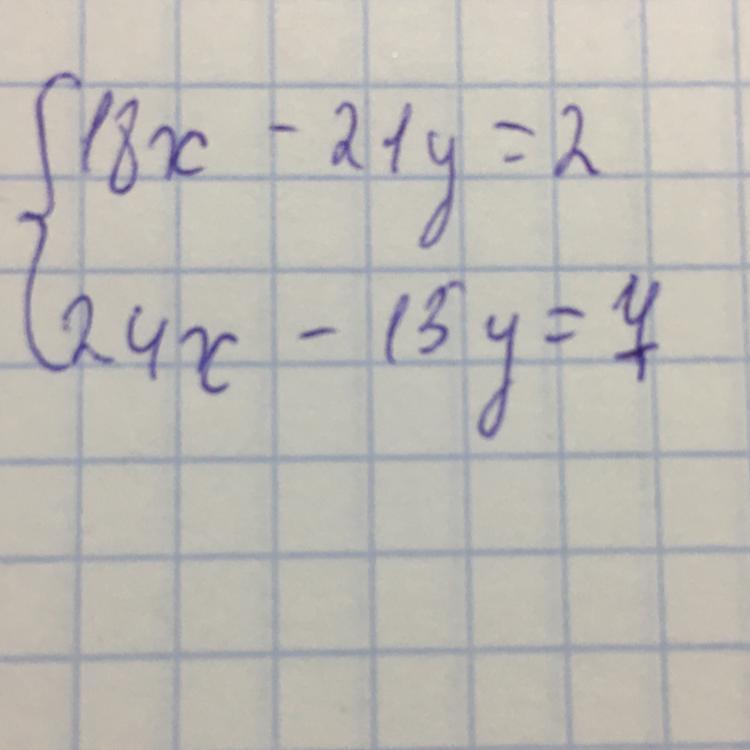 18x - 21y = 2
24x - 15y = 7